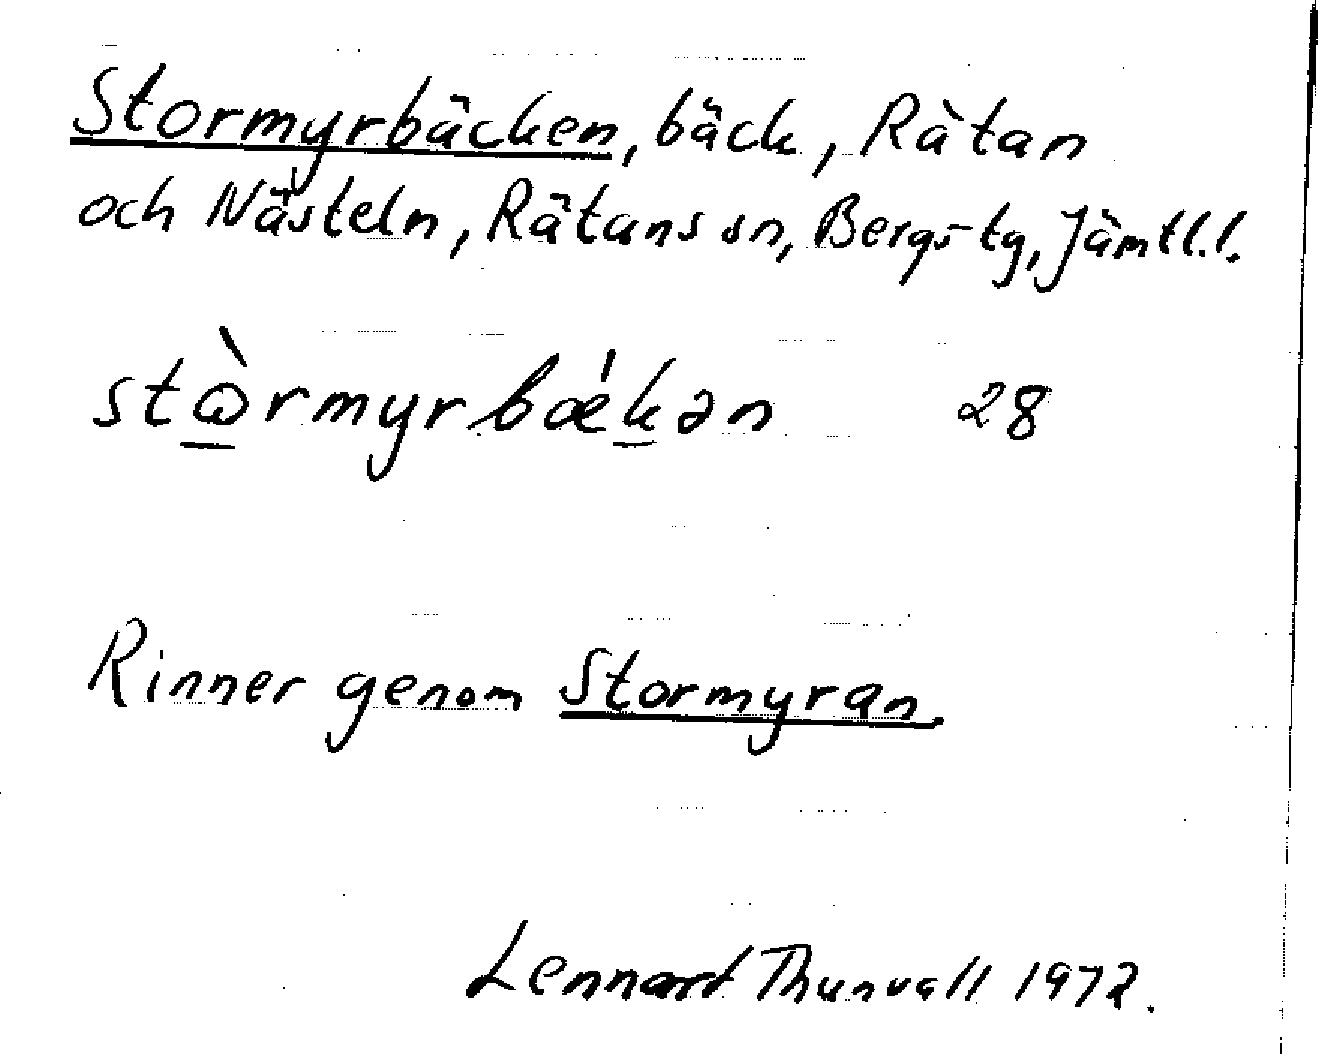 Stormyrbäcken, bäck, Rätan
och Nästeln, Rätans sn, Bergs tg, Jämtl.l.
stɷ̀rmyrbǽkən 28
Rinner genom Stormyran.
Lennart Thunvall 1972.